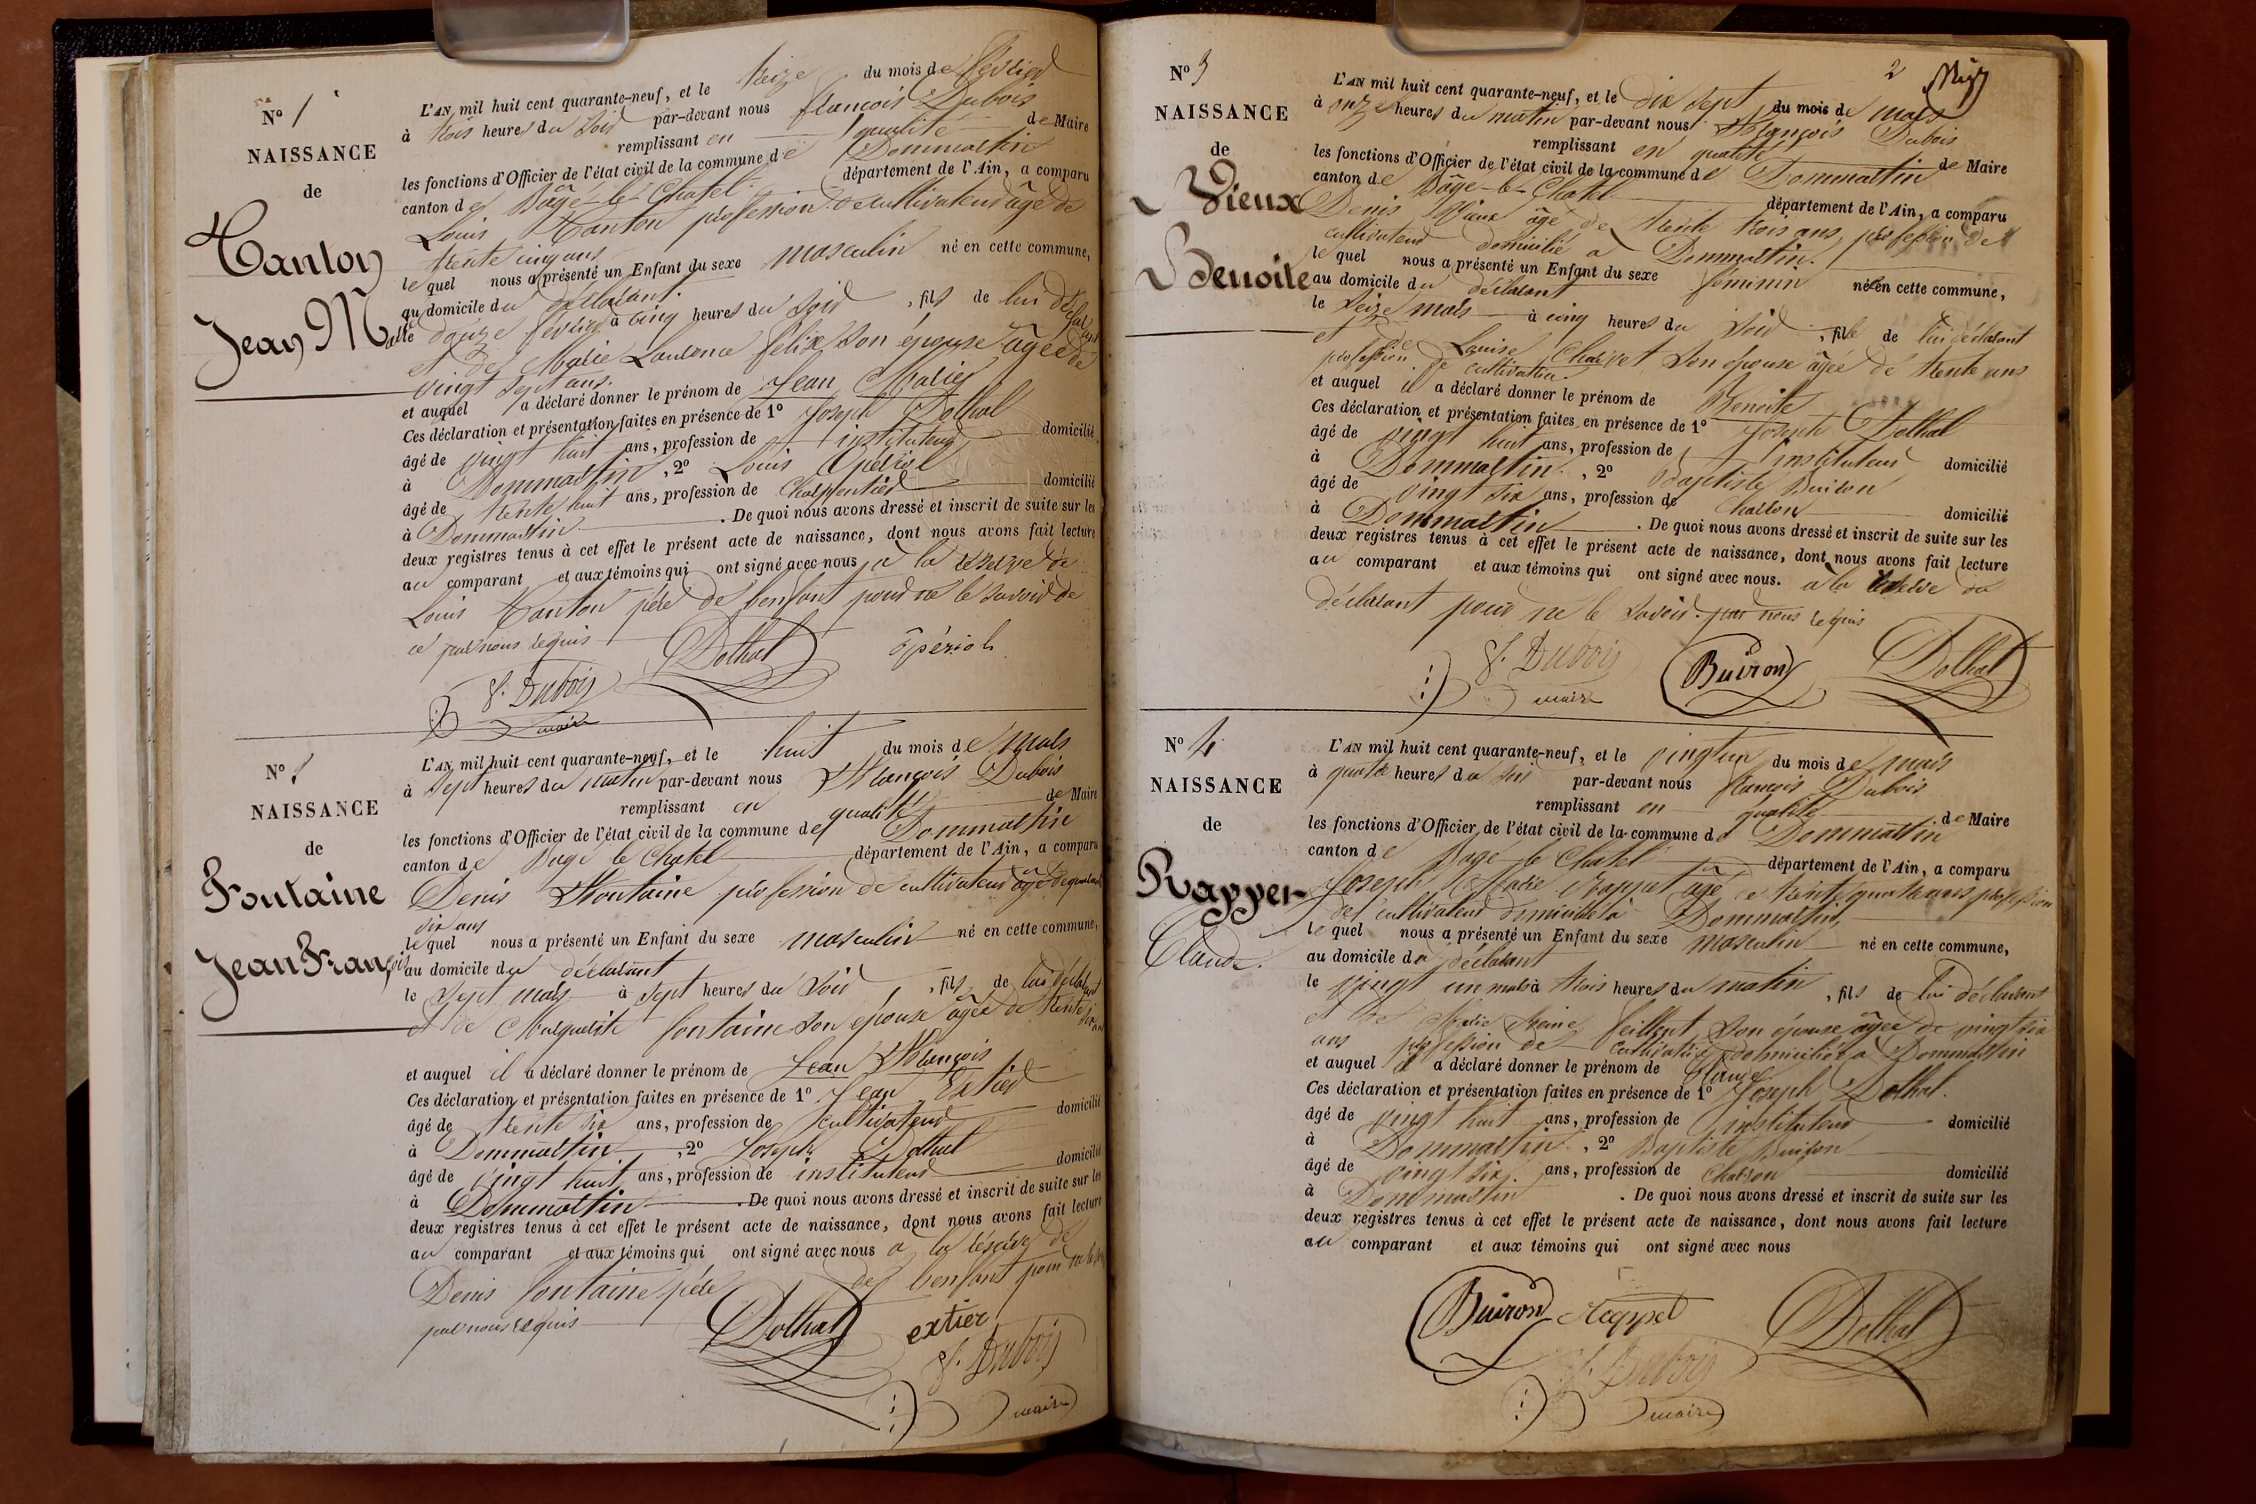 N° 1
NAISSANCE
de
Canton
Jean Marie
L'AN mil huit cent quarante-neuf, et le treize du mois de février
à trois heures du soir par-devant nous françois Dubois
remplissant en qualité de Maire
les fonctions d'Officier de l'état civil de la commune de Dommartin
canton de Bâgé-le-Chatel département de l'Ain, a comparu
Louis Canton profession de cultivateur âgé de
trente cinq ans
le quel nous a présenté un Enfant du sexe masculin né en cette commune,
au domicile du déclarant.
le douze février à cinq heures du soir, fils de lui déclarant
et de Marie Laurence félix son épouse âgée de
vingt sept ans.
et auquel a déclaré donner le prénom de Jean Marie
Ces déclaration et présentation faites en présence de 1° Joseph Dothal
âgé de vingt huit ans, profession de instituteur domicilié
à Dommartin, 2° Louis Opériol
âgé de trente huit ans, profession de Charpentier domicilié
à Dommartin. De quoi nous avons dressé et inscrit de suite sur les
deux registres tenus à cet effet le présent acte de naissance, dont nous avons fait lecture
au comparant et aux témoins qui ont signé avec nous à la réserve de
Louis Canton père de l'enfant pour ne le savoir de
ce par nous requis
Dothal opériol
f. Dubois
maire
N°
NAISSANCE
de
Fontaine
Jean François
L'AN mil huit cent quarante-neuf, et le huit du mois de mars
à sept heures du matin par-devant nous François Dubois
remplissant en qualité de Maire
les fonctions d'Officier de l'état civil de la commune de Dommartin
canton de Bagé le Chatel département de l'Ain, a comparu
Denis Fontaine profession de cultivateur âgé de quarante
six ans
le quel nous a présenté un Enfant du sexe masculin né en cette commune,
au domicile du déclarant
le sept mars à sept heures du soir, fils de lui déclarant
et de Marguerite fontaine son épouse âgée de trente
et auquel il a déclaré donner le prénom de Jean François
Ces déclaration et présentation faites en présence de 1° Jean Extier
âgé de trente six ans, profession de cultivateur domicilié
à Dommartin, 2° Joseph Dothal
âgé de vingt huit ans, profession de instituteur domicilié
à Dommartin. De quoi nous avons dressé et inscrit de suite sur les
deux registres tenus à cet effet le présent acte de naissance, dont nous avons fait lecture
au comparant et aux témoins qui ont signé avec nous a la réserve de
Denis fontaine père de l'enfant pour ne le
par nous requis
Dothal extier
f. Dubois
maire
2
N° 3
NAISSANCE
de
Vieux
Benoite
L'AN mil huit cent quarante-neuf, et le dix sept du mois de mars
à onze heures du matin par-devant nous François Dubois
remplissant en qualité de Maire
les fonctions d'Officier de l'état civil de la commune de Dommartin
canton de Bâgé-le-Chatel département de l'Ain, a comparu
Denis Vieux âgé de trente trois ans, profession de
cultivateur domicilié à Dommartin.
le quel nous a présenté un Enfant du sexe féminin née en cette commune,
au domicile du déclarant
le seize mars à cinq heures du soir, fille de lui déclarant
et de Louise Charvet son épouse âgée de trente ans
profession de cultivatrice.
et auquel il a déclaré donner le prénom de Benoite
Ces déclaration et présentation faites en présence de 1° Joseph Dothal
âgé de vingt huit ans, profession de instituteur domicilié
à Dommartin, 2° Baptiste Buiron
âgé de vingt six ans, profession de Charron domicilié
à Dommartin. De quoi nous avons dressé et inscrit de suite sur les
deux registres tenus à cet effet le présent acte de naissance, dont nous avons fait lecture
au comparant et aux témoins qui ont signé avec nous. à la réserve du
déclarant pour ne le savoir. par nous requis
f. Dubois Buiron Dothal
maire
N° 4
NAISSANCE
de
Rappet
Claude.
L'AN mil huit cent quarante-neuf, et le vingt un du mois de mars
à quatre heures du soir par-devant nous françois Dubois
remplissant en qualité de Maire
les fonctions d'Officier de l'état civil de la commune de Dommartin
canton de Bagé le Chatel département de l'Ain, a comparu
Joseph Marie Rappet âgé de trente quatre ans profession
de cultivateur domicilié à Dommartin,
le quel nous a présenté un Enfant du sexe masculin né en cette commune,
au domicile du déclarant
le vingt un mars à trois heures du matin, fils de lui déclarant
et de Marie feillent son épouse âgée de vingt six
ans profession de cultivatrice domiciliée à Dommartin
et auquel il a déclaré donner le prénom de Claude
Ces déclaration et présentation faites en présence de 1° Joseph Dothal.
âgé de vingt huit ans, profession de instituteur domicilié
à Dommartin, 2° Baptiste Buiron
âgé de vingt six ans, profession de Charron domicilié
à Dommartin. De quoi nous avons dressé et inscrit de suite sur les
deux registres tenus à cet effet le présent acte de naissance, dont nous avons fait lecture
au comparant et aux témoins qui ont signé avec nous
Buiron Rappet Dothal
f. Dubois
maire